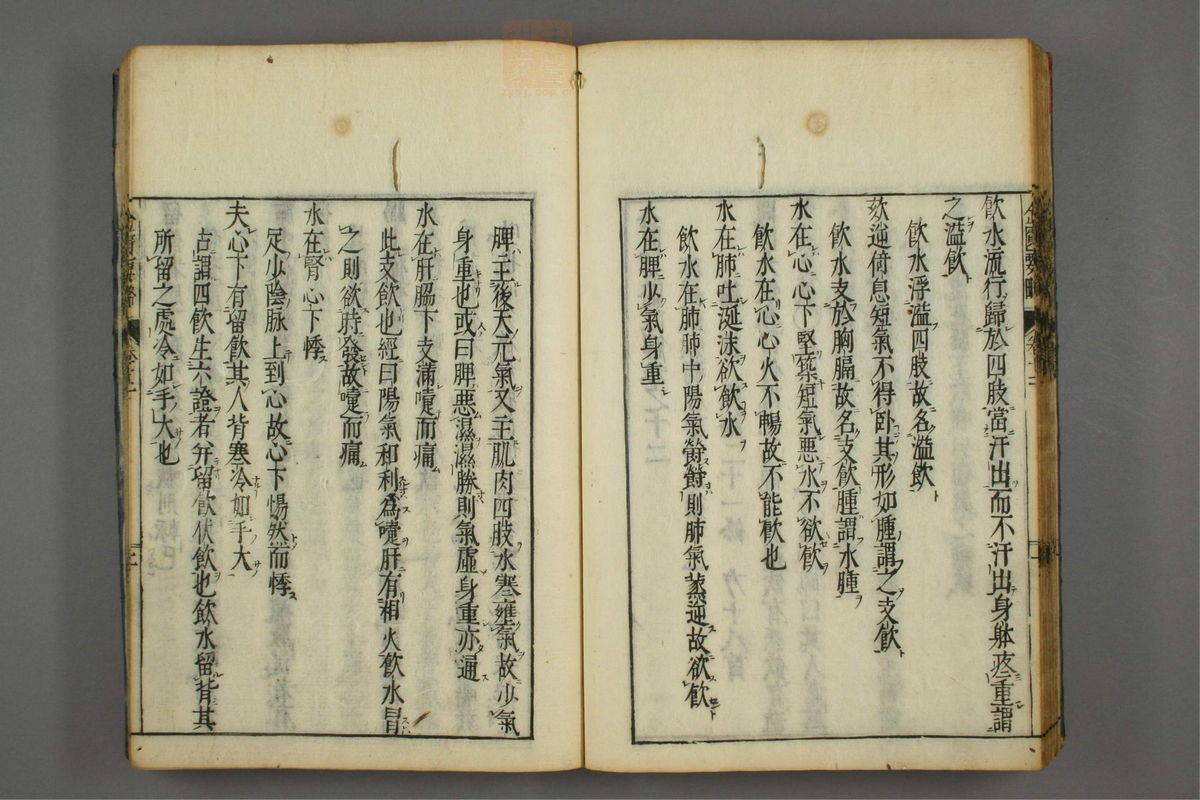 飲水流行歸於四肢當汗出而不汗出身躰疼重謂
之溢飲
飲水浮溢四肢故名溢飲
欬逆倚息短氣不得臥其形如腫謂之支飲
飲水支於胸膈故名支飲腫謂水腫
水在心心下堅築短氣惡水不欲飲
飲水在心心火不暢故不能飮也
水在肺吐涎沫欲飲水
飲水在肺肺中陽氣則肺氣蒸逆故欲飲
水在脾少氣身重
脾主後天元氣又主肌肉四肢水寒壅氣故少氣
身重也或曰脾惡濕濕勝則氣虛身重亦通
水在肝脇下支滿嚏而痛
此支飲也經曰陽氣和利為嚏肝有相火飲水冒
之則欲時發故嚏而痛
水在腎心下悸
足少陰脉上到心故心下惕然而悸
夫心下有留飲其人背寒冷如手大
古謂四飲生六證者并留飲伏飲也飲水留背其
所留之處冷如手大也
金匱要略